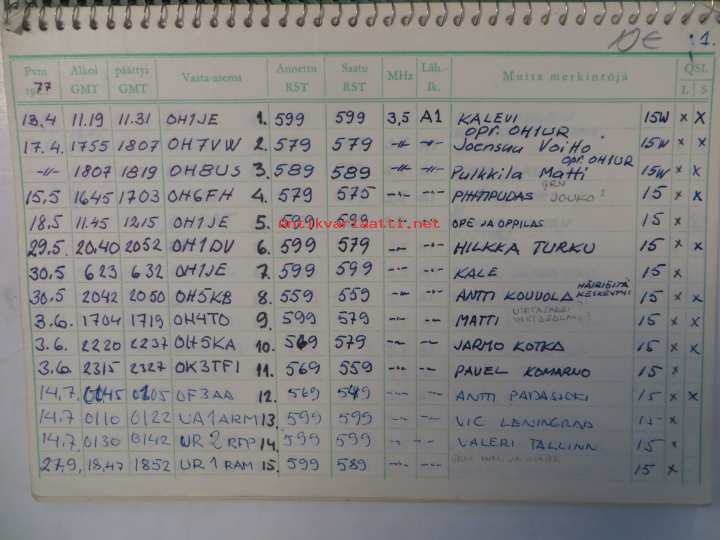 DE 1.
Pvm 1977 Alkoi GMT päättyi GMT Vasta-asema Annettu RST Saatu RST MHz Läh.-lk. Muita merkintöjä QSL L S
13.4 11.19 11.31 OH1JE 1. 599 599 3,5 A1 KALEVI 15W x x
opr. OH1UR
17.4. 1755 1807 OH7VW 2. 579 579 -"- -"- Joensuu Voitto 15W x x
opr. OH1UR
-"- 1807 1819 OH8US 3. 589 589 -"- -"- Pulkkila Matti 15W x x
15.5 1645 1703 OH6FH 4. 579 575 -"- -"- PIHTIPUDAS JOUKO? 15 x x
18.5 11.45 12.15 OH1JE 5. 599 599 -"- -"- OPE JA OPPILAS 15 x
Antikvariaatti.net
29.5. 20.40 2052 OH1DV 6. 599 579 -"- -"- HILKKA TURKU 15 x x
30.5 623 632 OH1JE 7. 599 599 -"- -"- KALE 15 x
HÄIRIÖITÄ
30.5 2042 2050 OH5KB 8. 559 559 -"- -"- ANTTI KOUVOLA KESKEYTYI 15 x x
3.6. 1704 1719 OH4TO 9. 599 579 -"- -"- MATTI 15 x x
3.6. 2220 2237 OH5KA 10. 569 579 -"- -"- JARMO KOTKA 15 x x
3.6 2315 2327 OK3TFI 11. 569 559 -"- -"- PAVEL KOMARNO 15 x
14.7. 0045 0105 OF3AA 12. 569 549 -"- -"- ANTTI PADASJOKI 15 x x
14.7 0110 0122 UA1ARM 13. 599 599 -"- -"- VIC LENINGRAD 15 x
14.7. 0130 0142 UR2RTP 14. 599 599 -"- -"- VALERI TALLINN 15 x
27.9. 18.47 1852 UR1RAM 15. 599 589 -"- -"- 15 x